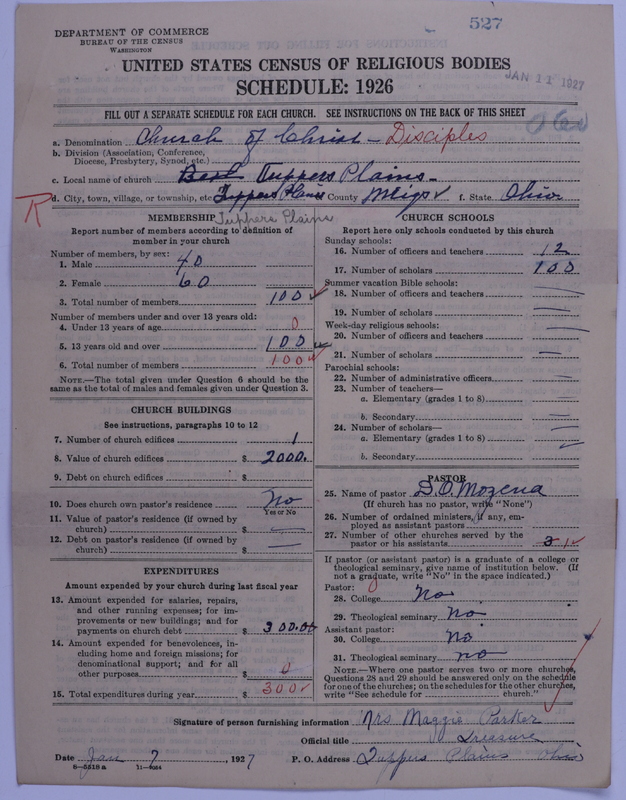 527
DEPARTMENT OF COMMERCE
BUREAU OF THE CENSUS
WASHINGTON
UNITED STATES CENSUS OF RELIGIOUS BODIES
JAN 11 1927
SCHEDULE: 1926
FILL OUT A SEPARATE SCHEDULE FOR EACH CHURCH. SEE INSTRUCTIONS ON THE BACK OF THIS SHEET
a. Denomination Church of Christ — Disciples
b. Division (Association, Conference,
Diocese, Presbytery, Synod, etc.)
c. Local name of church Tuppers Plains
d. City, town, village, or township, etc. Tuppers Plains County Meigs f. State Ohio
R
MEMBERSHIP Tuppers Plains
Report number of members according to definition of
member in your church
Number of members, by sex:
1. Male 40
2. Female 60
3. Total number of members 100
Number of members under and over 13 years old:
4. Under 13 years of age 0
5. 13 years old and over 100
6. Total number of members 100
NOTE.—The total given under Question 6 should be
the same as the total of males and females given under Question 3.
CHURCH BUILDINGS
See instructions, paragraphs 10 to 12
7. Number of church edifices 1
8. Value of church edifices $ 2000.
9. Debt on church edifices $
10. Does church own pastor's residence No
Yes or No
11. Value of pastor's residence (if owned by
church) $ —
12. Debt on pastor's residence (if owned by
church) $ —
EXPENDITURES
Amount expended by your church during last fiscal year
13. Amount expended for salaries, repairs,
and other running expenses; for im-
provements or new buildings; and for
payments on church debt $ 300.00
14. Amount expended for benevolences, in-
cluding home and foreign missions; for
denominational support; and for all
other purposes $ 0
15. Total expenditures during year $ 300
CHURCH SCHOOLS
Report here only schools conducted by this church
Sunday schools:
16. Number of officers and teachers 12
17. Number of scholars 100
Summer vacation Bible schools:
18. Number of officers and teachers —
19. Number of scholars —
Week-day religious schools:
20. Number of officers and teachers —
21. Number of scholars —
Parochial schools:
22. Number of administrative officers —
23. Number of teachers—
a. Elementary (grades 1 to 8) —
b. Secondary —
24. Number of scholars—
a. Elementary (grades 1 to 8) —
b. Secondary
PASTOR
25. Name of pastor D.O. Mozena
(If church has no pastor, write "None")
26. Number of ordained ministers, if any, em-
ployed as assistant pastors
27. Number of other churches served by the
pastor or his assistants 3
If pastor (or assistant pastor) is a graduate of a college or
theological seminary, give name of institution below. (If
not a graduate, write "No" in the space indicated.)
Pastor:
28. College No
29. Theological seminary No
Assistant pastor:
30. College No
31. Theological seminary no
NOTE.—Where one pastor serves two or more churches,
Questions 28 and 29 should be answered only on the schedule
for one of the churches; on the schedules for the other churches,
write "See schedule for church."
Signature of person furnishing information Mrs Maggie Parker
Official title Treasure
Date Jan 7, 1927 P. O. Address Tuppers Plains Ohio
8—5518 a 11—9064